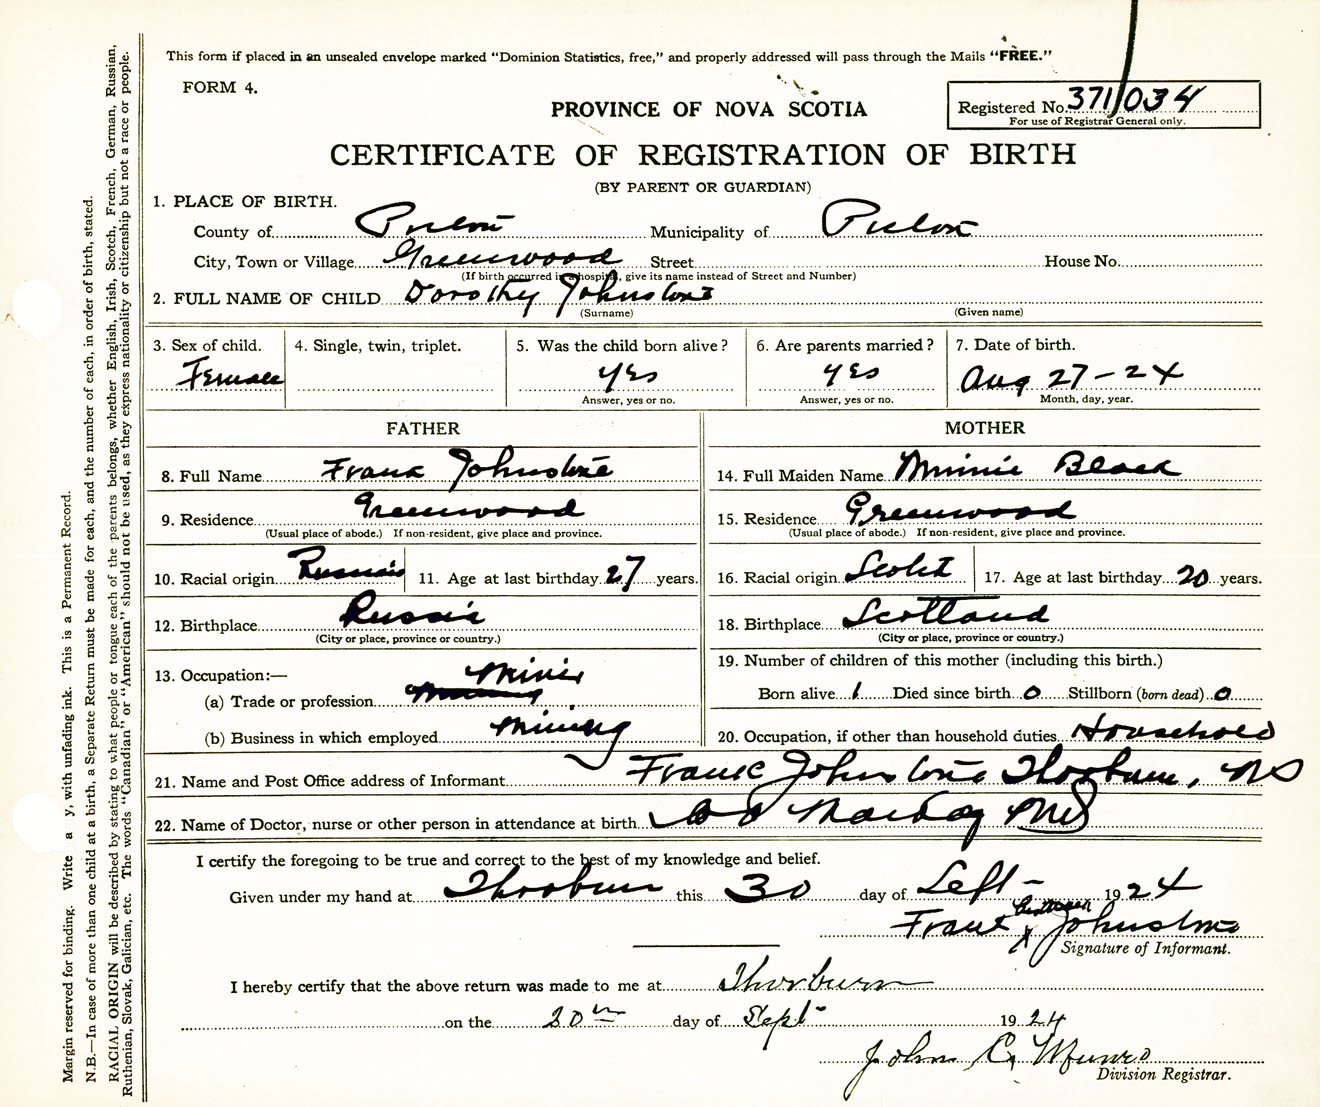 This form if placed in an unsealed envelope marked “Dominion Statistics, free,” and properly addressed will pass through the Mails “FREE.”
FORM 4.
PROVINCE OF NOVA SCOTIA
Registered No. 371034
For use of Registrar General only.
CERTIFICATE OF REGISTRATION OF BIRTH
(BY PARENT OR GUARDIAN)
1. PLACE OF BIRTH.
County of Pictou Municipality of Pictou
City, Town or Village Greenwood Street House No.
(If birth occurred in a hospital, give its name instead of Street and Number)
2. FULL NAME OF CHILD Dorothy Johnstone
(Surname) (Given name)
3. Sex of child. 4. Single, twin, triplet. 5. Was the child born alive? 6. Are parents married? 7. Date of birth.
Female yes yes Aug 27-24
Answer, yes or no. Answer, yes or no. Month, day, year.
FATHER MOTHER
8. Full Name Frank Johnstone 14. Full Maiden Name Minnie Black
9. Residence Greenwood 15. Residence Greenwood
(Usual place of abode.) If non-resident, give place and province. (Usual place of abode.) If non-resident, give place and province.
10. Racial origin Russian 11. Age at last birthday 27 years. 16. Racial origin Scotch 17. Age at last birthday 20 years.
12. Birthplace Russia 18. Birthplace Scotland
(City or place, province or country.) (City or place, province or country.)
13. Occupation:— 19. Number of children of this mother (including this birth.)
(a) Trade or profession Miner Born alive 1 Died since birth 0 Stillborn (born dead) 0
(b) Business in which employed Mining 20. Occupation, if other than household duties Household
21. Name and Post Office address of Informant Frank Johnstone Thorburn, NS
22. Name of Doctor, nurse or other person in attendance at birth
I certify the foregoing to be true and correct to the best of my knowledge and belief.
Given under my hand at Thorburn this 30 day of Sept- 1924
Frank X Johnstone
Signature of Informant.
I hereby certify that the above return was made to me at Thorburn
on the 30th day of Sept- 1924
John C. Munro
Division Registrar.
Margin reserved for binding. Write y, with unfading ink. This is a Permanent Record.
N.B.—In case of more than one child at a birth, a Separate Return must be made for each, and the number of each, in order of birth, stated.
RACIAL ORIGIN will be described by stating to what people or tongue each of the parents belongs, whether English, Irish, Scotch, French, German, Russian,
Ruthenian, Slovak, Galician, etc. The words “Canadian” or “American” should not be used, as they express nationality or citizenship but not a race or people.